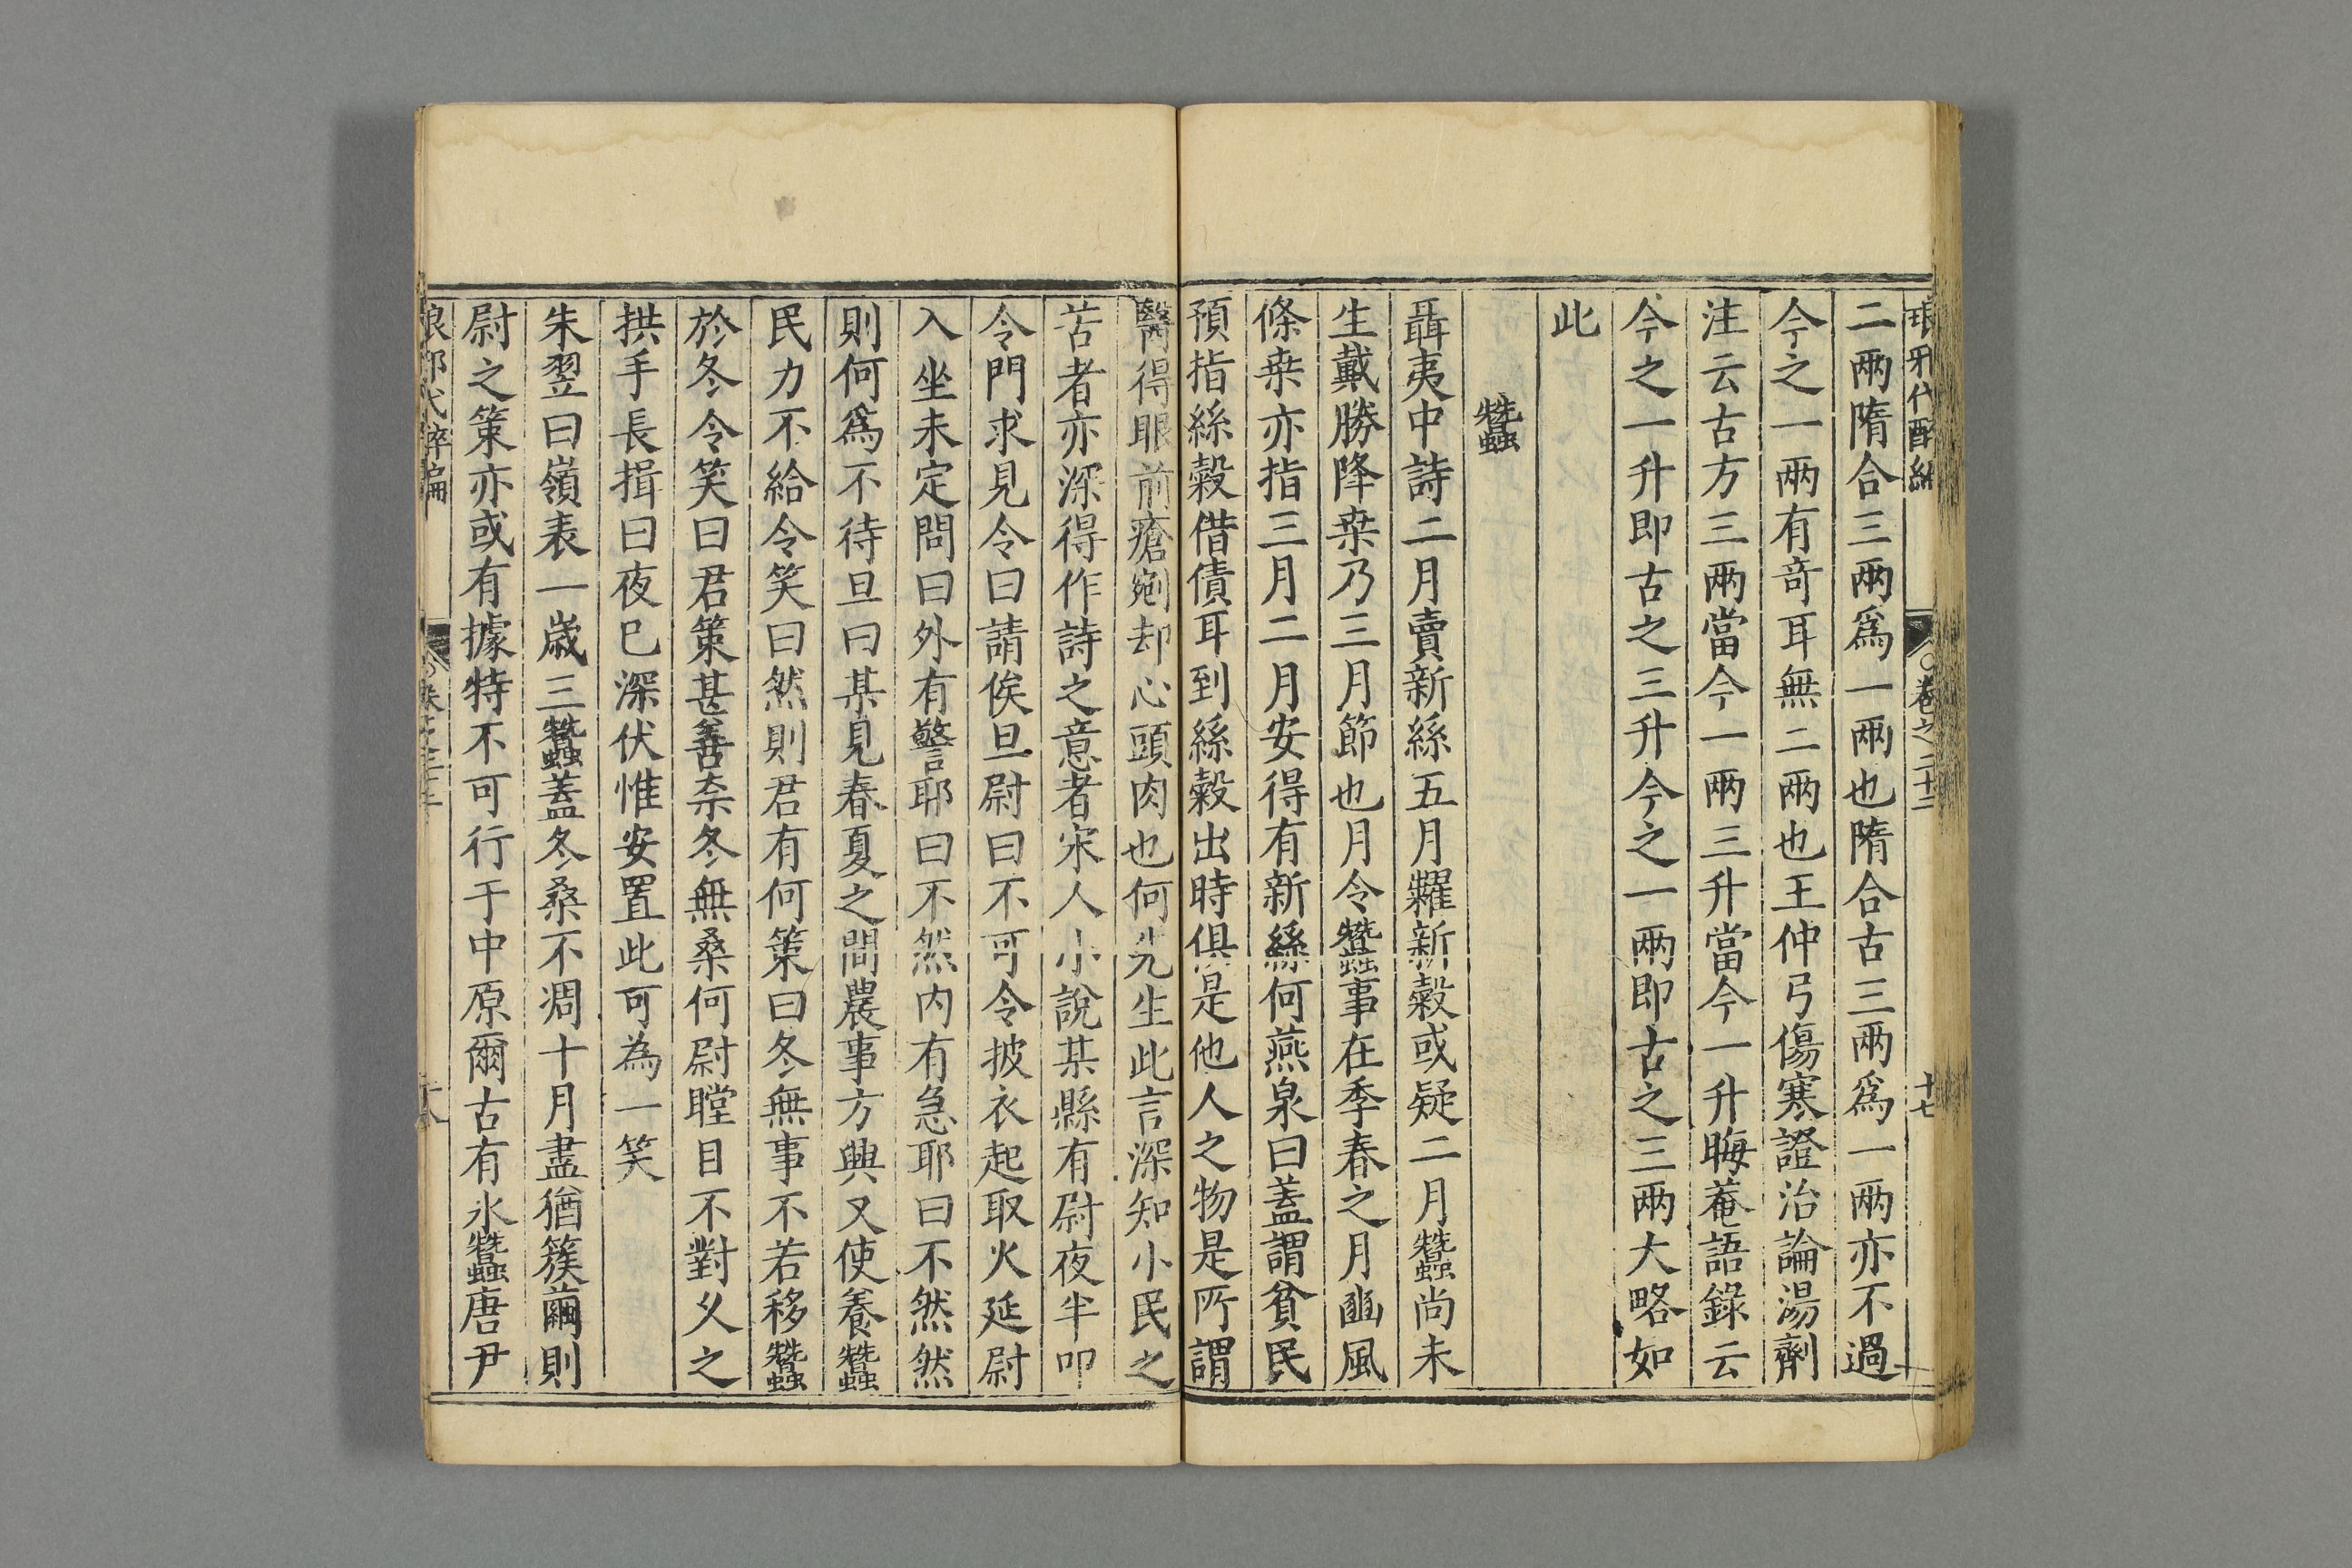 卷之二十二
十七
二兩隋合三兩爲一兩也隋合古三兩爲一兩亦不過
今之一兩有竒耳無二兩也王仲弓傷寒證治論湯劑
注云古方三兩當今一兩三升當今一升晦菴語錄云
今之一升即古之三升今之一兩即古之三兩大略如
此
蠶
聶夷中詩二月賣新絲五月糶新穀或疑二月蠶尚未
生戴勝降桒乃三月節也月令蠶事在季春之月豳風
條桒亦指三月二月安得有新絲何燕泉曰蓋謂貧民
預指絲穀借債耳到絲穀出時俱是他人之物是所謂
醫得眼前瘡剜却心頭肉也何先生此言深知小民之
苦者亦深得作詩之意者宋人小說某縣有尉夜半叩
令門求見令曰請俟旦尉曰不可令披衣起取火延尉
入坐未定問曰外有警耶曰不然內有急耶曰不然然
則何爲不待旦曰某見春夏之間農事方興又使養蠶
民力不給令笑曰然則君有何策曰冬無事不若移蠶
於冬令笑曰君策甚善柰冬無桑何尉瞠目不對乆之
拱手長揖曰夜已深伏惟安置此可為一笑
朱翌曰嶺表一歲三蠶蓋冬桑不凋十月盡猶簇繭則
尉之策亦或有據特不可行于中原爾古有氷蠶唐尹